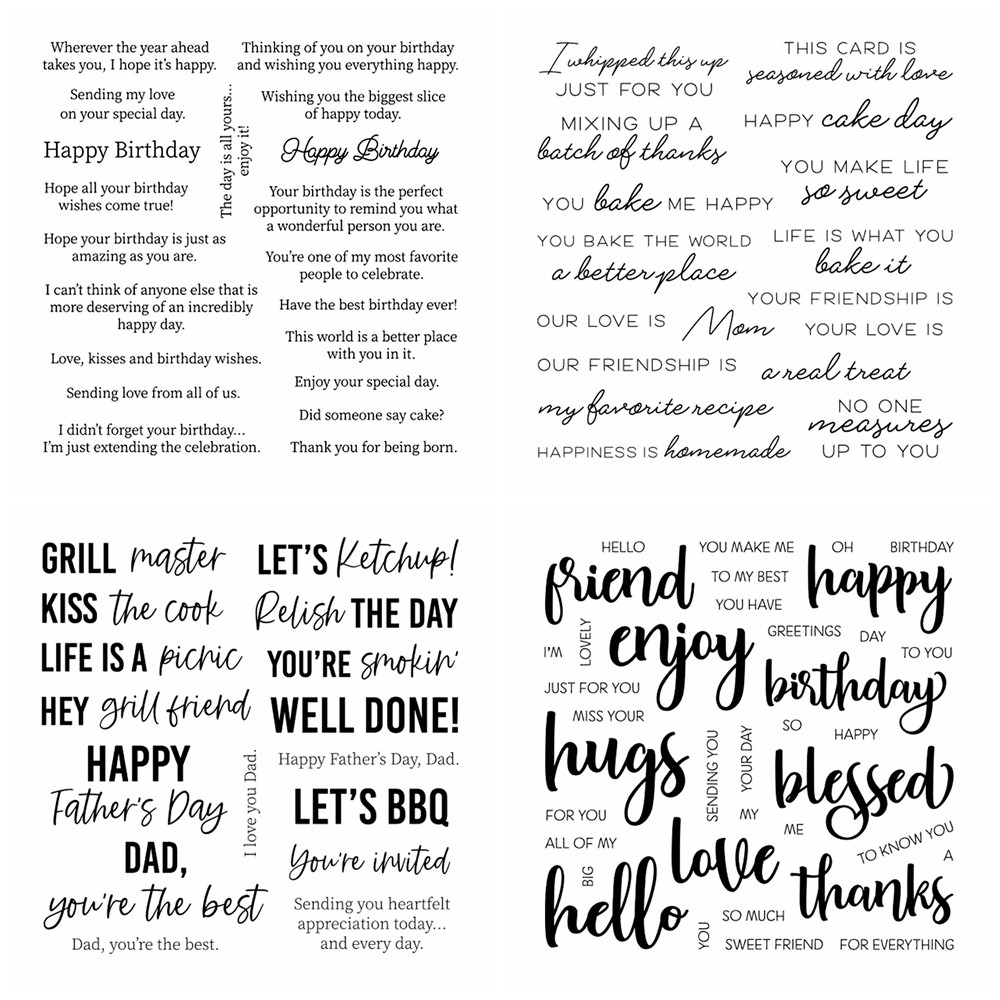 Wherever the year ahead
takes you, I hope it's happy.
Sending my love
on your special day.
Happy Birthday
Hope all your birthday
wishes come true!
Hope your birthday is just as
amazing as you are.
I can't think of anyone else that is
more deserving of an incredibly
happy day.
Love, kisses and birthday wishes.
Sending love from all of us.
I didn't forget your birthday...
I'm just extending the celebration.
The day is all yours...
enjoy it!
Thinking of you on your birthday
and wishing you everything happy.
Wishing you the biggest slice
of happy today.
Happy Birthday
Your birthday is the perfect
opportunity to remind you what
a wonderful person you are.
You're one of my most favorite
people to celebrate.
Have the best birthday ever!
This world is a better place
with you in it.
Enjoy your special day.
Did someone say cake?
Thank you for being born.
I whipped this up
JUST FOR YOU
MIXING UP A
batch of thanks
YOU bake ME HAPPY
YOU BAKE THE WORLD
a better place
OUR LOVE IS
Mom
OUR FRIENDSHIP IS
my favorite recipe
HAPPINESS IS homemade
THIS CARD IS
seasoned with love
HAPPY cake day
YOU MAKE LIFE
so sweet
LIFE IS WHAT YOU
bake it
YOUR FRIENDSHIP IS
YOUR LOVE IS
a real treat
NO ONE
measures
UP TO YOU
GRILL master
KISS the cook
LIFE IS A picnic
HEY grill friend
HAPPY
Father's Day
DAD,
you're the best
Dad, you're the best.
I love you Dad.
LET'S Ketchup!
Relish THE DAY
YOU'RE smokin'
WELL DONE!
Happy Father's Day, Dad.
LET'S BBQ
You're invited
Sending you heartfelt
appreciation today...
and every day.
HELLO
YOU MAKE ME
OH
BIRTHDAY
friend
TO MY BEST
happy
YOU HAVE
I'M
LOVELY
enjoy
GREETINGS
DAY
TO YOU
JUST FOR YOU
birthday
MISS YOUR
SO
HAPPY
hugs
SENDING YOU
YOUR DAY
blessed
FOR YOU
MY
ME
ALL OF MY
love
TO KNOW YOU
A
BIG
hello
thanks
YOU
SO MUCH
SWEET FRIEND
FOR EVERYTHING